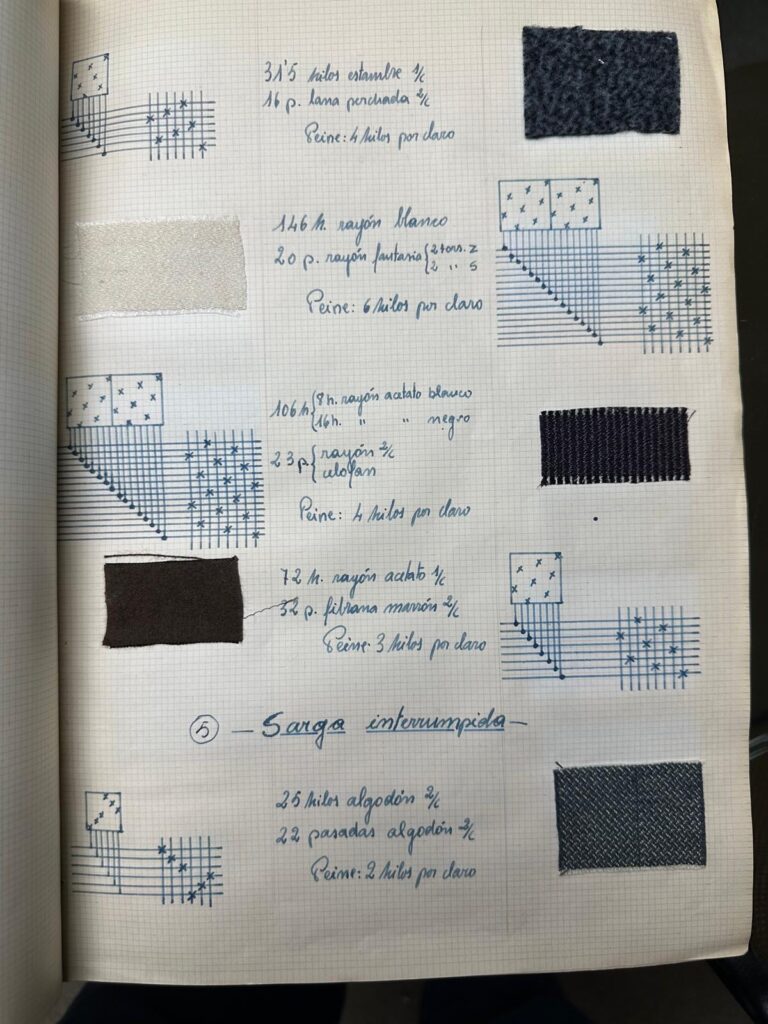 31'5 hilos estambre 1/c
16 p. lana perchada 2/c
Peine: 4 hilos por claro
146 h. rayón blanco
20 p. rayón fantasia { 2 tors. Z
2 " S
Peine: 6 hilos por claro
106 h { 8 h. rayón acetato blanco
16 h. " " negro
23 p. { rayón 2/c
celofan
Peine: 4 hilos por claro
72 h. rayón acetato 1/c
32 p. fibrana marrón 2/c
Peine: 3 hilos por claro
5 — Sarga interrumpida —
25 hilos algodón 2/c
22 pasadas algodón 2/c
Peine: 2 hilos por claro